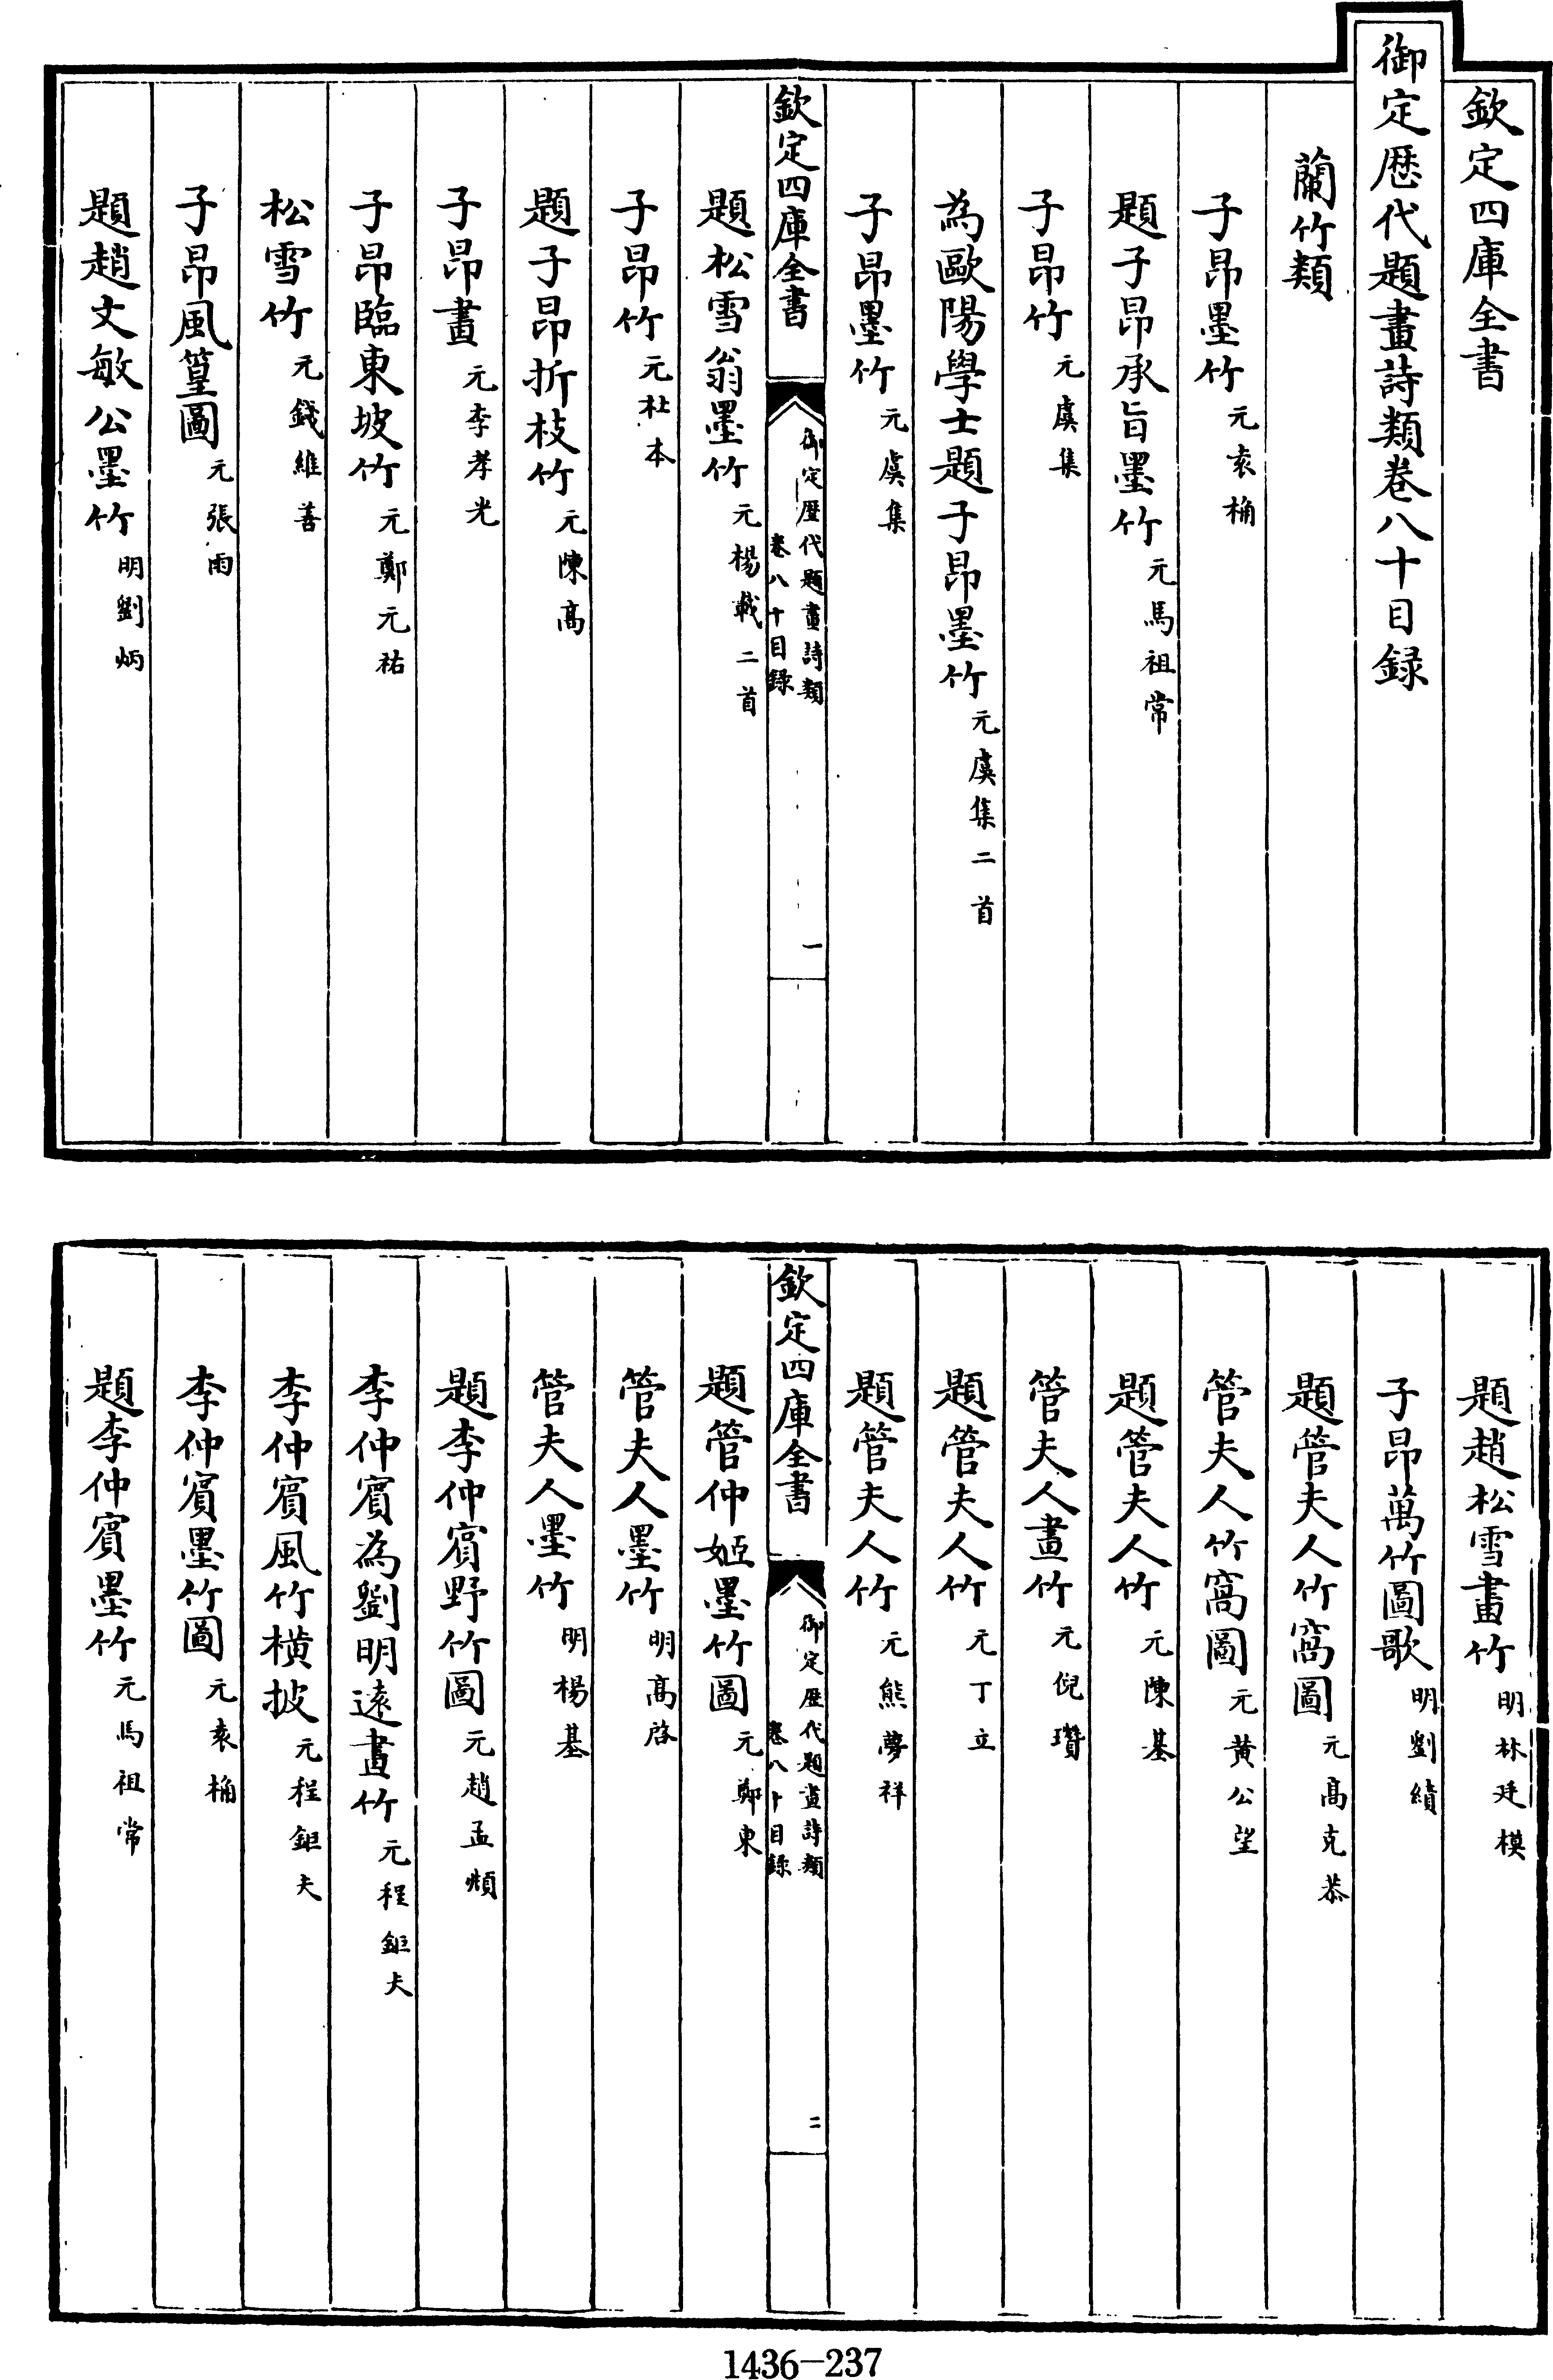 欽定四庫全書
御定歴代題畫詩類卷八十目録
蘭竹類
子昂墨竹元袁桷
題子昂承旨墨竹元馬祖常
子昂竹元虞集
為歐陽學士題子昂墨竹元虞集二首
子昂墨竹元虞集
欽定四庫全書
御定歴代題畫詩類
卷八十目録
一
題松雪翁墨竹元楊載二首
子昂竹元杜本
題子昂折枝竹元陳高
子昂畫元李孝光
子昂臨東坡竹元鄭元祐
松雪竹元錢維善
子昂風篁圖元張雨
題趙文敏公墨竹明劉炳
題趙松雪畫竹明林廷模
子昂萬竹圖歌明劉績
題管夫人竹窩圖元高克恭
管夫人竹窩圖元黄公望
題管夫人竹元陳基
管夫人畫竹元倪瓚
題管夫人竹元丁立
題管夫人竹元熊夢祥
欽定四庫全書
御定歴代題畫詩類
卷八十目録
二
題管仲姬墨竹圖元鄭東
管夫人墨竹明高啓
管夫人墨竹明楊基
題李仲賓野竹圖元趙孟頫
李仲賓為劉明遠畫竹元程鉅夫
李仲賓風竹横披元程鉅夫
李仲賓墨竹圖元袁桷
題李仲賓墨竹元馬祖常
1436-237